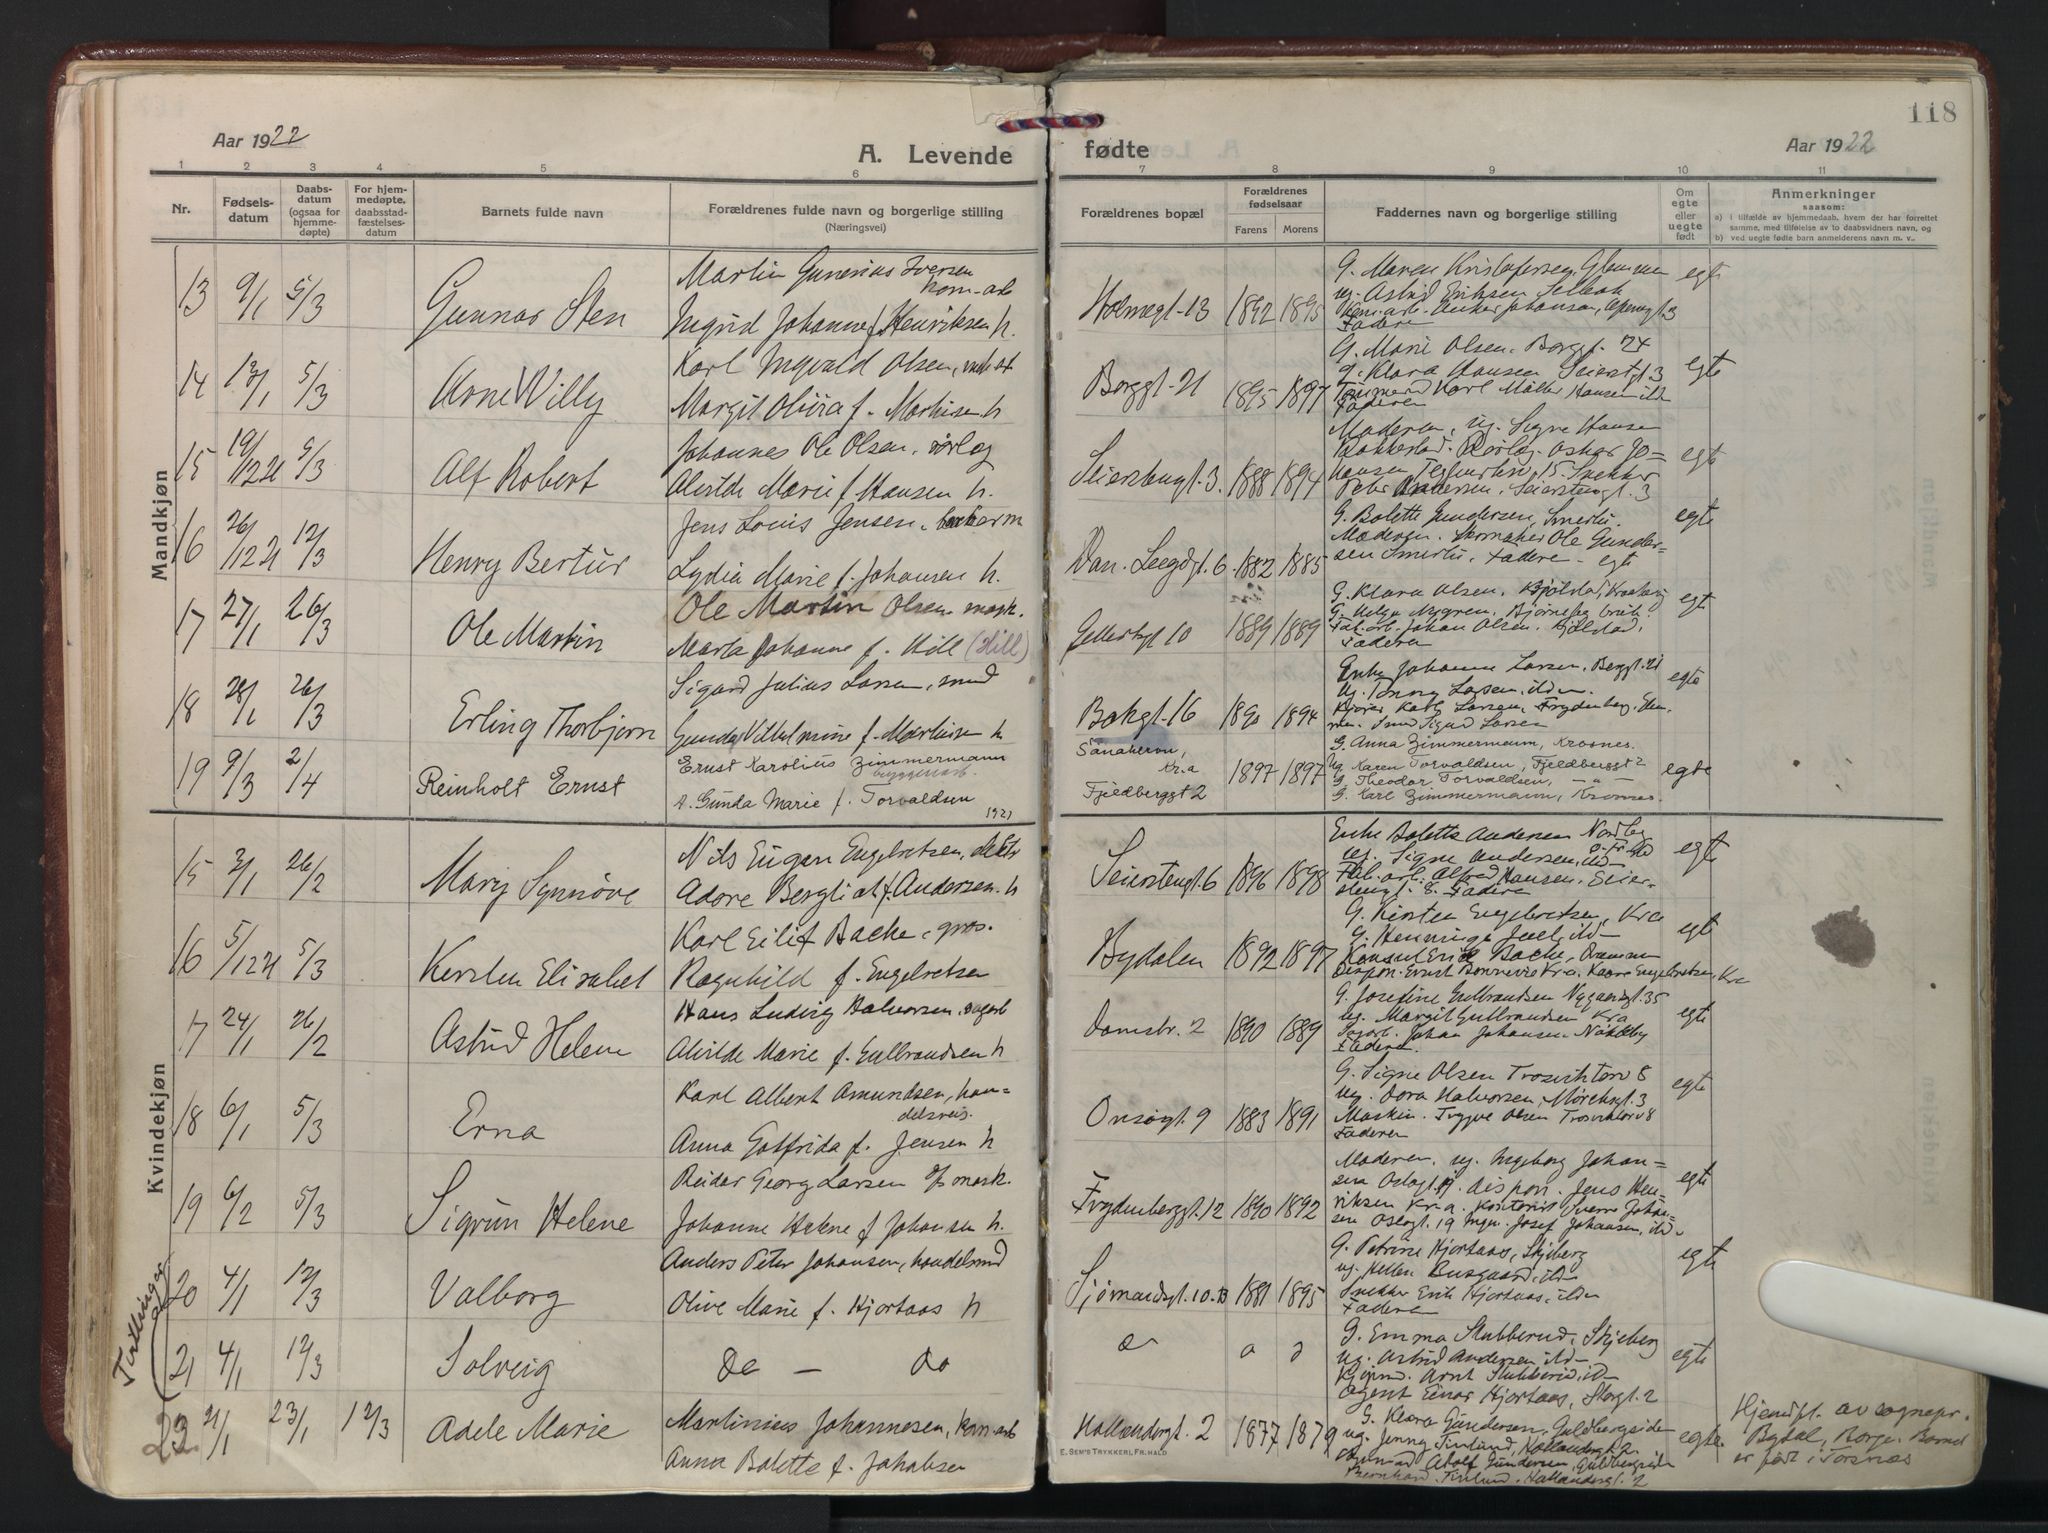 118
Aar 1922
A. Levende fødte
Aar 1922
1 2 3 4 5 6 7 8 9 10 11
Nr.
Fødsels-
datum
Daabs-
datum
(ogsaa for
hjemme-
døpte)
For hjem-
medøpte,
daabsstad-
fæstelses-
datum
Barnets fulde navn
Forældrenes fulde navn og borgerlige stilling
(Næringsvei)
Forældrenes bopæl
Forældrenes
fødselsaar
Farens Morens
Faddernes navn og borgerlige stilling
Om
egte
eller
uegte
født
Anmerkninger
saasom:
a) i tilfælde av hjemmedaab, hvem der har forrettet
samme, med tilføielse av to daabsvidners navn, og
b) ved uegte fødte barn anmelderens navn m. v.
Mandkjøn
13 9/1 5/3 Gunnar Sten
Martin Gunerius Iversen
Ingrid Johanne f. Henriksen h.
Holmegt. 13 1892 1895
G. Maren Kristofersen, Glemmen
ug. Astrid Eriksen Selbak
Faderen
egte
14 13/1 5/3 Arne Willy
Karl Ingvald Olsen,
Margit Olvira f. Martinsen h
Borggt. 21 1895 1897
G. Marie Olsen, Borggt. 74
G. Klara Hansen Seierstgt. 3
Karl Hansen ild
Faderen
egte
15 19/12 21 5/3 Alf Robert
Johannes Ole Olsen, rørlæg
Alvilde Marie f. Hansen h.
Seierstengt. 3. 1888 1894
Moderen, ug. Signe Hansen
Rørlæg. Oskar Jo-
hansen 15. Snekker
Petr Andersen, Seierstengt. 3
egte
16 26/12 21 12/3 Henry Bertur
Jens Louis Jensen,
Lydia Marie f. Johansen h.
Dan. Leegdgt. 6 1882 1885
G. Bolette Gundersen, Smertu.
Moderen. Skomaker Ole Gunder-
sen Smertu, Fadere - egte
egte
17 27/1 26/3 Ole Martin
Ole Martin Olsen mask.
Marta Johanne f. Hill (Hill)
1889 1889
G. Klara Olsen,
G. Helga Nygren,
Fab. arb. Johan Olsen,
Faderen
egte
18 28/1 26/3 Erling Thorbjørn
Sigurd Julius Larsen, smed
Gunda Vilhelmine f. Martinsen h
Bakgt. 16 1890 1894
Enke Johanne Larsen, Berggt. 21
ug. Larsen, ild.
Karl Larsen, Frydenberg,
Smed Sigurd Larsen
egte
19 9/3 2/4 Reinholt Ernst
Ernst Karolius Zimmermann
h. Gunda Marie f. Torvaldsen
1921
Kr.a
Fjeldberggt 2
1897 1897
G. Anna Zimmermann, Krosnes.
Ug. Karen Torvaldsen, Fjeldberggt 2
G. Theodor Torvaldsen, — „ —
G. Karl Zimmermann, Krosnes.
egte
Kvindekjøn
15 3/1 26/2 Mary Synnøve
Nils Eugen Engebretsen,
Adore Bergliot f. Andersen. h
Seierstengt. 6 1896 1898
Enke Bolette Andersen Nordby
ug. Signe Andersen, ild
Fab. arb. Alfred Hansen, Seier-
stengt. 8. Fadere
egte
16 5/12 21 5/3 Kirsten Elisabet
Karl Eilif Backe, gros.
Ragnhild f. Engebretsen
Bydalen 1892 1897
G. Kirsten Engebretsen, Kra
G. Henninge Juell, ild
Konsul Erik Backe, Drammen
Dispon. Ernst Bonnevie Kra. Kaare Engebretsen, Kra
egte
17 24/1 26/2 Astrid Helene
Hans Ludvig Halvorsen, sagarb
Alvilde Marie f. Gulbrandsen h
Damstr. 2 1890 1889
G. Josefine Gulbrandsen Nygaardsgt. 35
ug. Margit Gulbrandsen Kra
Sagarb. Johan Johansen
Faderen
egte
18 6/1 5/3 Erna
Karl Albert Amundsen, han-
delsreis.
Anna Gotfrida f. Jensen h
Onsøgt. 9 1883 1891
G. Signe Olsen Trosviktorv 8
ug. Dora Halvorsen, Mørchsgt. 3
Maskin. Trygve Olsen Trosviktorv 8
Faderen
egte
19 6/2 5/3 Sigrun Helene
Reidar Georg Larsen mask.
Johanne Helene f. Johansen h.
Frydenberggt. 12 1890 1892
Moderen, ug. Ingeborg Johan-
sen Oslogt. 19. dispon. Jens Hen-
riksen Kr.a. Kontorist Sverre Johan-
sen Oslogt. 19 Ingn. Josef Johansen, ild.
egte
Tvillinger
20 4/1 12/3 Valborg
Anders Peter Johansen, handelsmd
Olive Marie f. Hjortaas h
Sjømandsgt. 10.B 1881 1895
G. Petrine Hjortaas, Skjeberg
ug. Hellen Busgaard, ild
Snekker Erik Hjortaas, ild
Faderen
egte
21 4/1 12/3 Solveig
do — do
G. Emma Stubberud, Skjeberg
ug. Astrid Andersen ild-
Arnt Stubberud, ild
Agent Einar Hjortaas, Storgt. 2
egte
23 21/1 23/1 12/3 Adele Marie
Martinius Johannesen, kom. arb
Anna Bolette f. Johansen
Hollændergt. 2 1877 1879
G. Klara Gundersen, Guldbergsiden
ug. Jenny Finlund, Hollændergt. 2
Adolf Gundersen, Guldbergsiden
Bernhard Finlund, Hollændergt. 2
egte.
Hjemdpt. av sognepr.
Bydal, Borge. Barnet
er født i Torsnæs
E. SEM'S TRYKKERI, FR.HALD